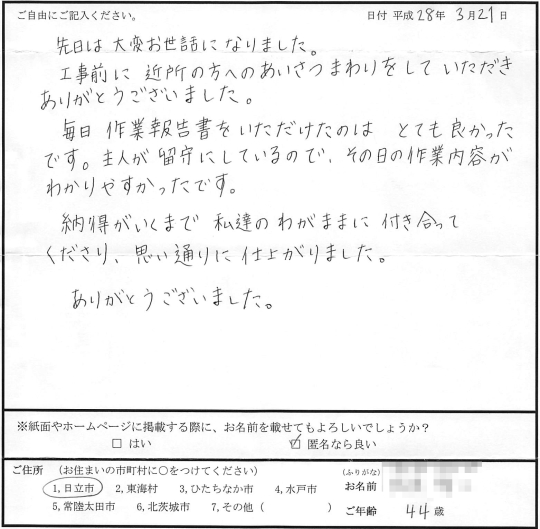 ご自由にご記入ください。 日付 平成28年 3月21日
先日は 大変お世話になりました。
工事前に 近所の方へのあいさつまわりをして いただき
ありがとうございました。
毎日 作業報告書をいただけたのは とても良かった
です。主人が 留守にしているので、その日の作業内容が
わかりやすかったです。
納得がいくまで 私達の わがままに 付き合って
くださり、思い通りに 仕上がりました。
ありがとうございました。
※紙面やホームページに掲載する際に、お名前を載せてもよろしいでしょうか？
□ はい ☑ 匿名なら良い
ご住所 (お住まいの市町村に○をつけてください) (ふりがな)
1,日立市 2,東海村 3,ひたちなか市 4,水戸市 お名前
5,常陸太田市 6,北茨城市 7,その他 ( ) ご年齢 44 歳